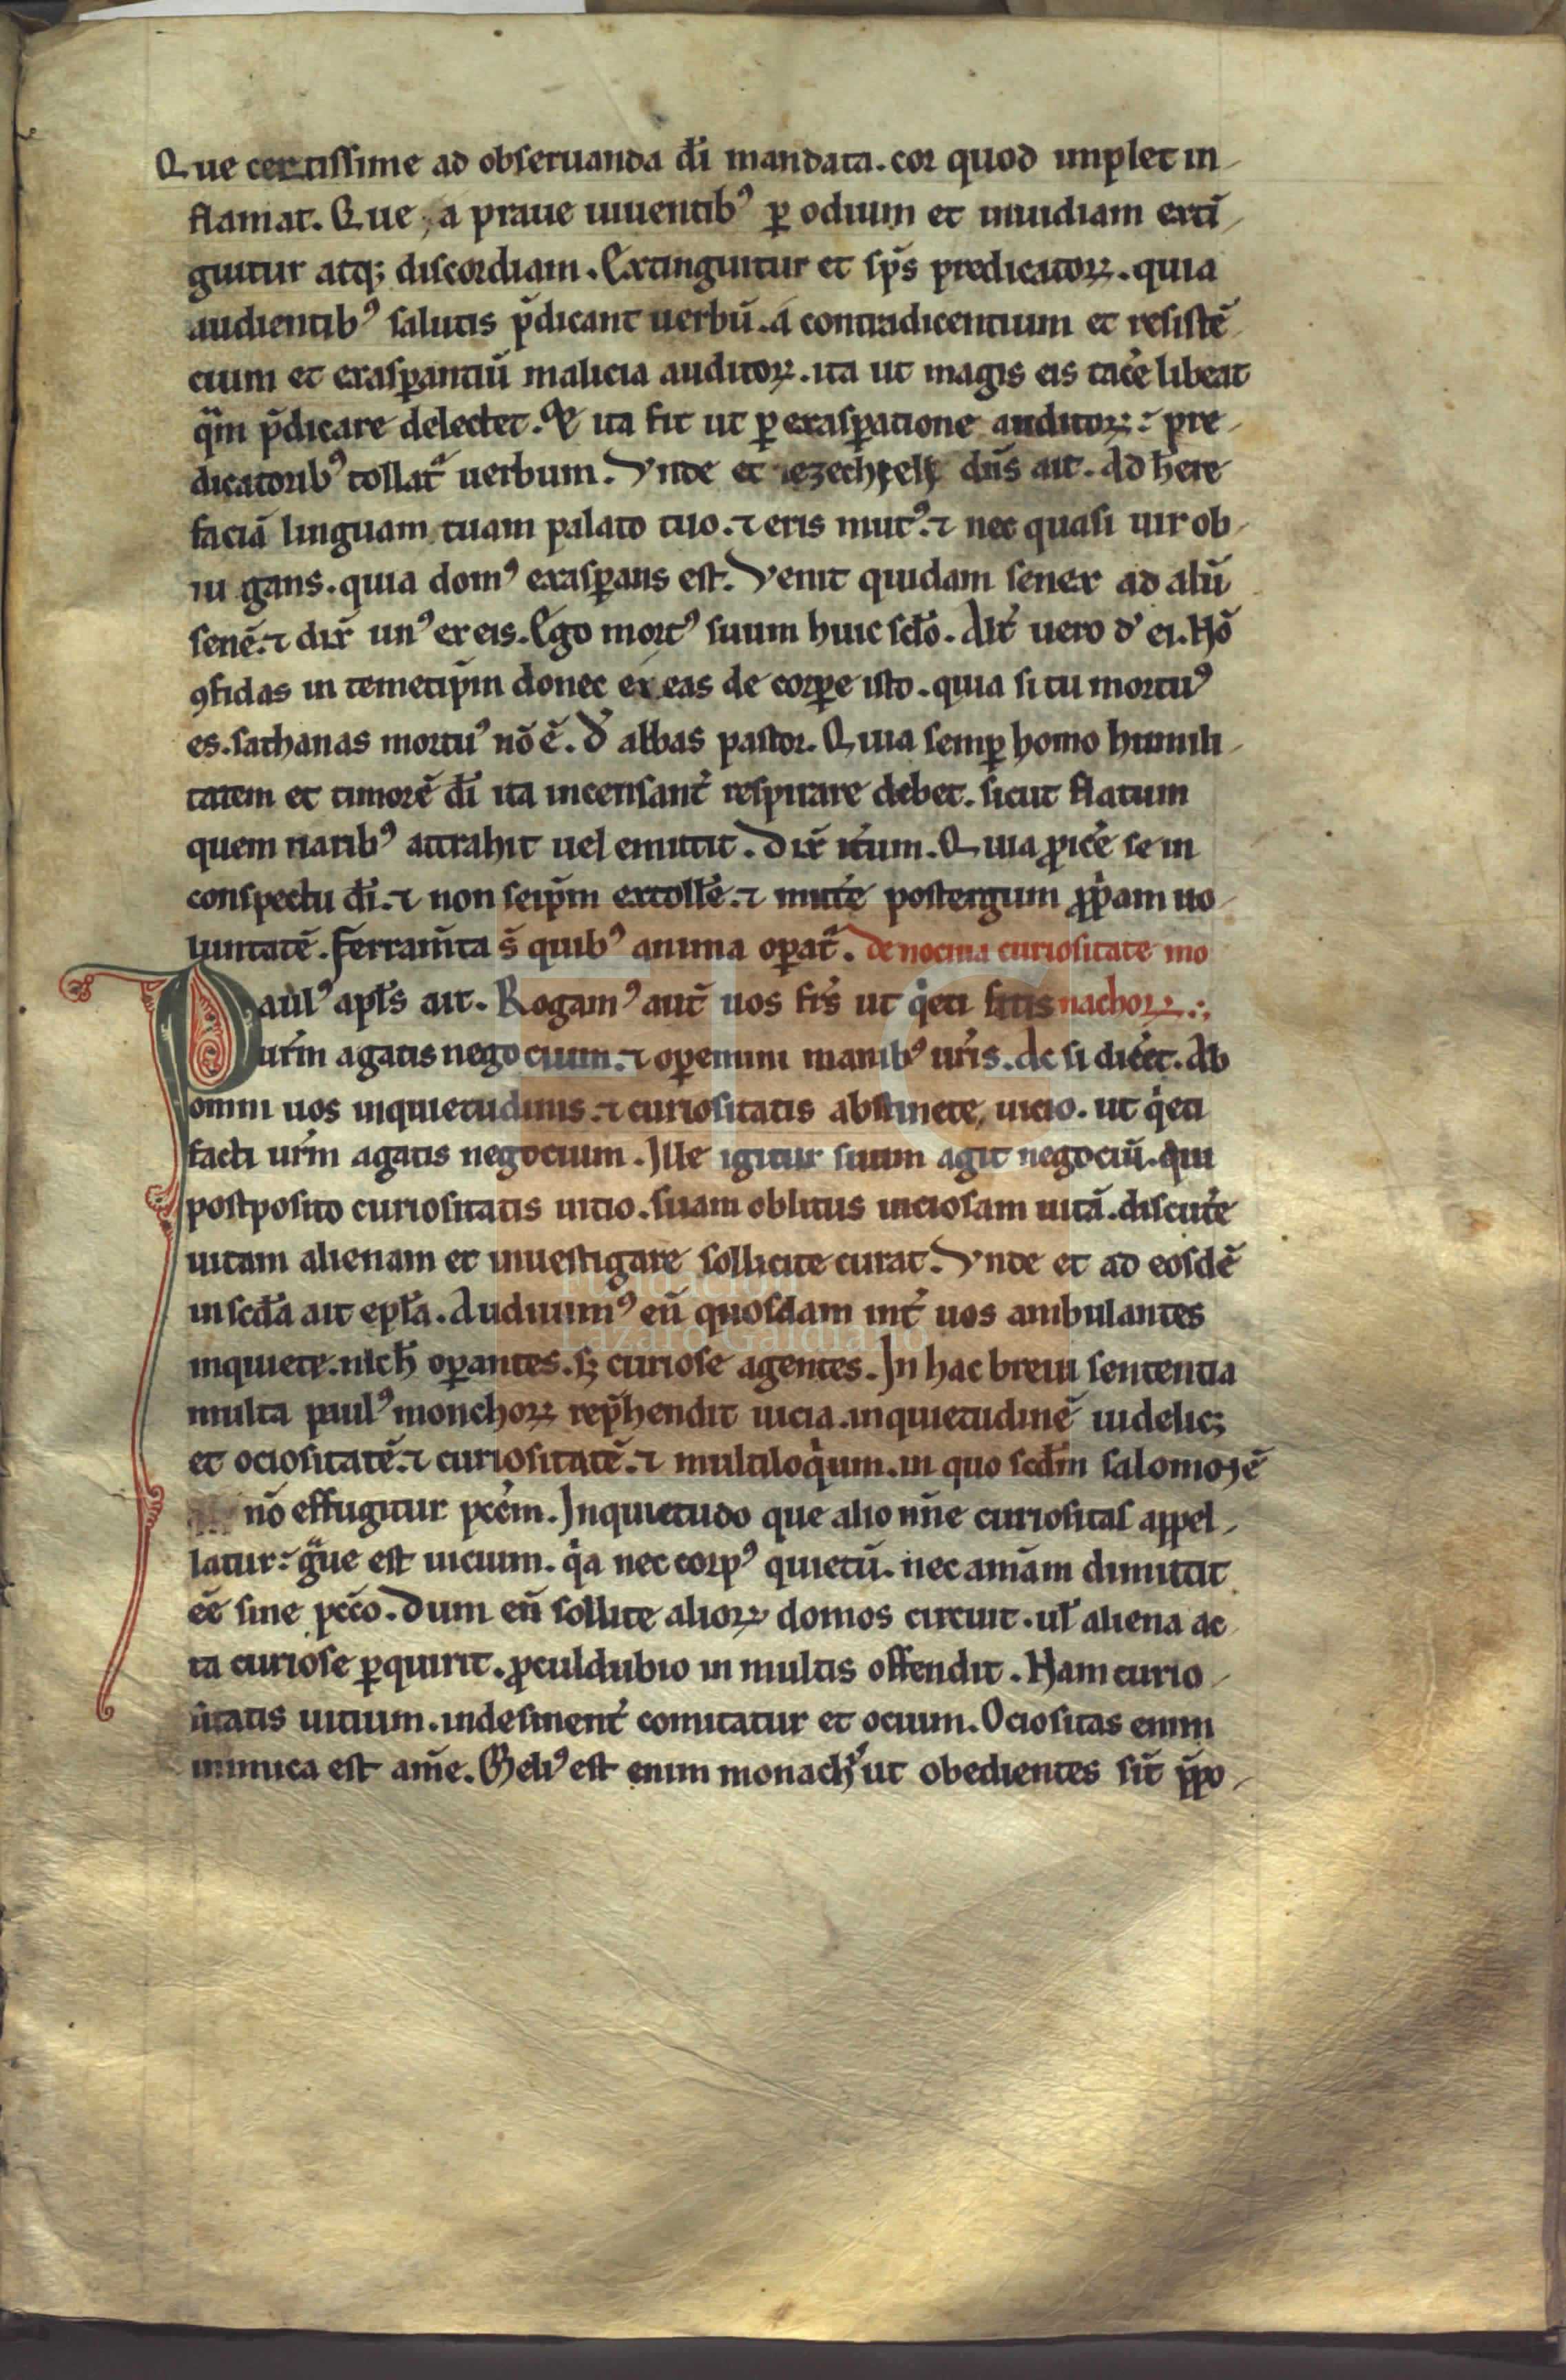 Que certissime ad obseruanda dī mandata. cor quod implet in-
flamat. Que, a praue uiuentibꝰ ꝑ odium et inuidiam exti-
guitur atq; discordiam. Extinguitur et sp̄s predicatoꝝ. quia
audientibꝰ salutis p̄dicant uerbū. a contradicentium et resistē-
cium et exasꝑantiū malicia auditoꝝ. ita ut magis eis tac̄e libeat
qͣm p̄dicare delectet. Et ita fit ut ꝑ exasꝑatione auditoꝝ: pre-
dicatoribꝰ tollatͬ uerbum. Vnde et iezechieli dn̄s ait. Ad herere
faciā linguam tuam palato tuo. ⁊ eris mutꝰ. ⁊ nec quasi uir ob-
iu gans. quia domꝰ exasꝑans est. Venit quidam senex ad aliū
senē. ⁊ dix̄ unꝰ ex eis. Ego mortꝰ suum huic sc̄do. Alt̄ uero d̓ ei. Nō
ꝯfidas in temetip̄m donec ex eas de corꝑe isto. quia si tu mortuꝰ
es. sathanas mortuꝰ nō ē. d̓ abbas pastor. Quia semꝑ homo humili-
tatem et timorē dī ita incensant̄ respirare debet. sicut flatum
quem naribꝰ attrahit uel emittit. Dix̄ it̄um. Quia ꝓic̄e se in
conspectu dī. ⁊ non seip̄m extoll̄e. ⁊ mitt̄e postergum ꝓp̄am uo-
luntatē. ferram̄ta s̄ quibꝰ anima oꝑatͬ. de nociua curiositate mo
Paulꝰ apl̄s ait. Rogamꝰ aut̄ uos fr̄s ut qͥeti sitis nachoꝝ.:,
ur̄m agatis negocium. ⁊ oꝑemini manibꝰ ur̄is. Ac si dic̄et. Ab
omni uos inquietudinis. ⁊ curiositatis abstinete, uicio. ut qͥeti
facti ur̄m agatis negocium. Ille igitur suum agit negociū. qui
postposito curiositatis uitio. suam oblitus uiciosam uitā. discut̄e
uitam alienam et inuestigare sollicite curat. Vnde et ad eosdē
in sc̄da ait epl̄a. Audiuimꝰ en̄ quosdam int̄ uos ambulantes
inquiete. nich̄ oꝑantes. s; curiose agentes. In hac breui sententia
multa paulꝰ monchoꝝ rep̄hendit uicia. inquietudinē uidelic;
et ociositatē. ⁊ curiositatē. ⁊ multiloqͥum. in quo sc̄dm salomonē
nō effugitur pcc̄m. Inquietudo que alio nn̄e curiositas appel-
latur: gͣue est uicium. qͥa nec corpꝰ quietū. nec am̄am dimittit
eē sine pcc̄o. Dum en̄ sollite alioꝝ domos circuit. ul̄ aliena ac-
ta curiose ꝑquirit. ꝓculdubio in multis offendit. Nam curio-
sitatis uitium. indesinent̄ comitatur et ocium. Ociositas enim
inimica est am̄e. Meliꝰ est enim monach̓ ut obedientes sīt p̄po-
Fundación
Lázaro Galdiano